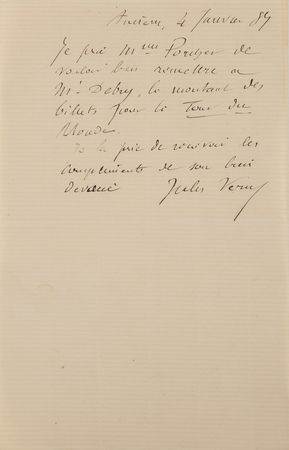 Amiens, 4 Janvier 87
Je prie Mme Porcher de
vouloir bien remettre à
Mr Debry, le montant des
billets pour le Tour du
Monde.
Je la prie de recevoir les
compliments de son bien
dévoué Jules Verne